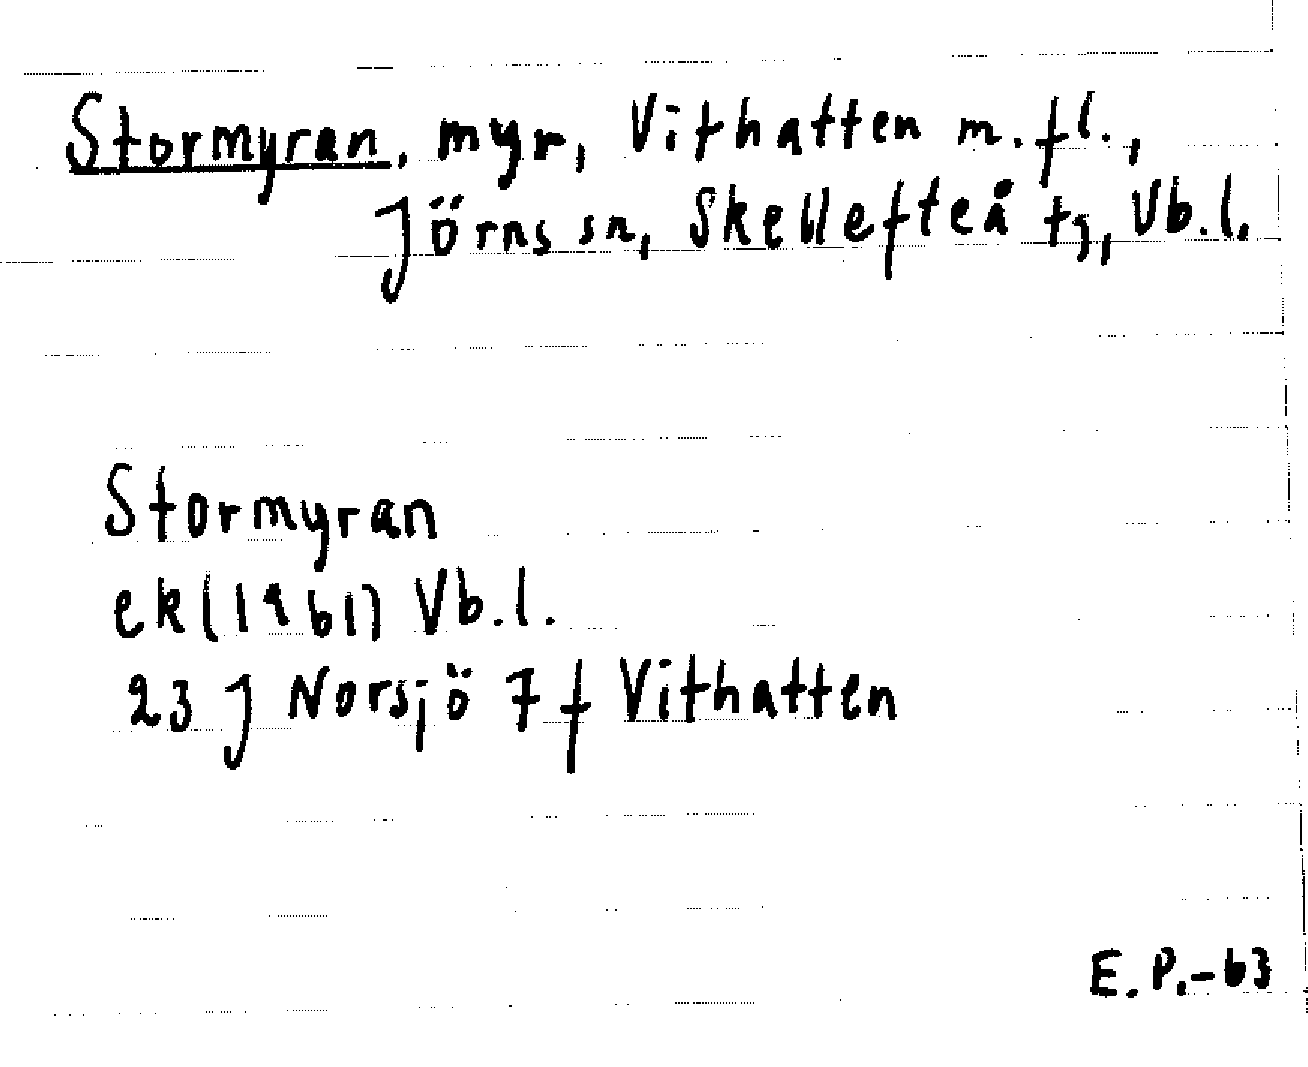 Stormyran, myr, Vithatten m.fl.,
Jörns sn, Skellefteå tg, Vb.l.
Stormyran
ek (1961) Vb.l.
23 J Norsjö 7 f Vithatten
E.P.-63